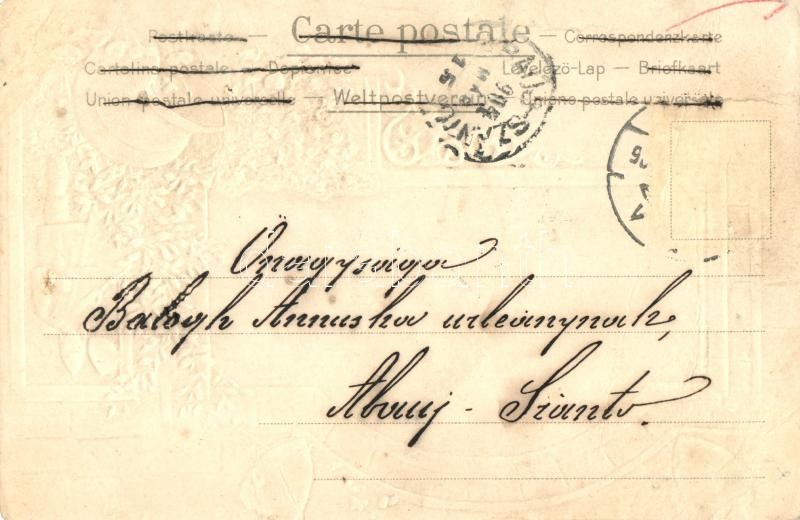 Carte postale
Postkarte — — Correspondenzkarte
Cartolina postale — Dopisnice Levelező-Lap — Briefkaart
Union postale universelle — Weltpostverein — Unione postale universale
Onagysaga
Balogh Annuska urleanynak,
Abauj - Szanto.